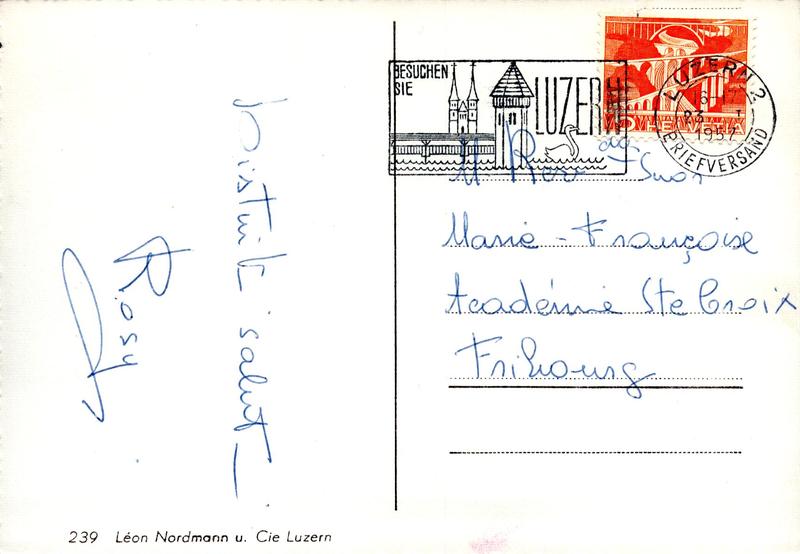 BESUCHEN
SIE
LUZERN
LUZERN 2
1957
BRIEFVERSAND
HELVETIA
Suor
Marie-Françoise
Académie Ste Croix
Fribourg
Distinti saluti
Rosy
239 Léon Nordmann u. Cie Luzern